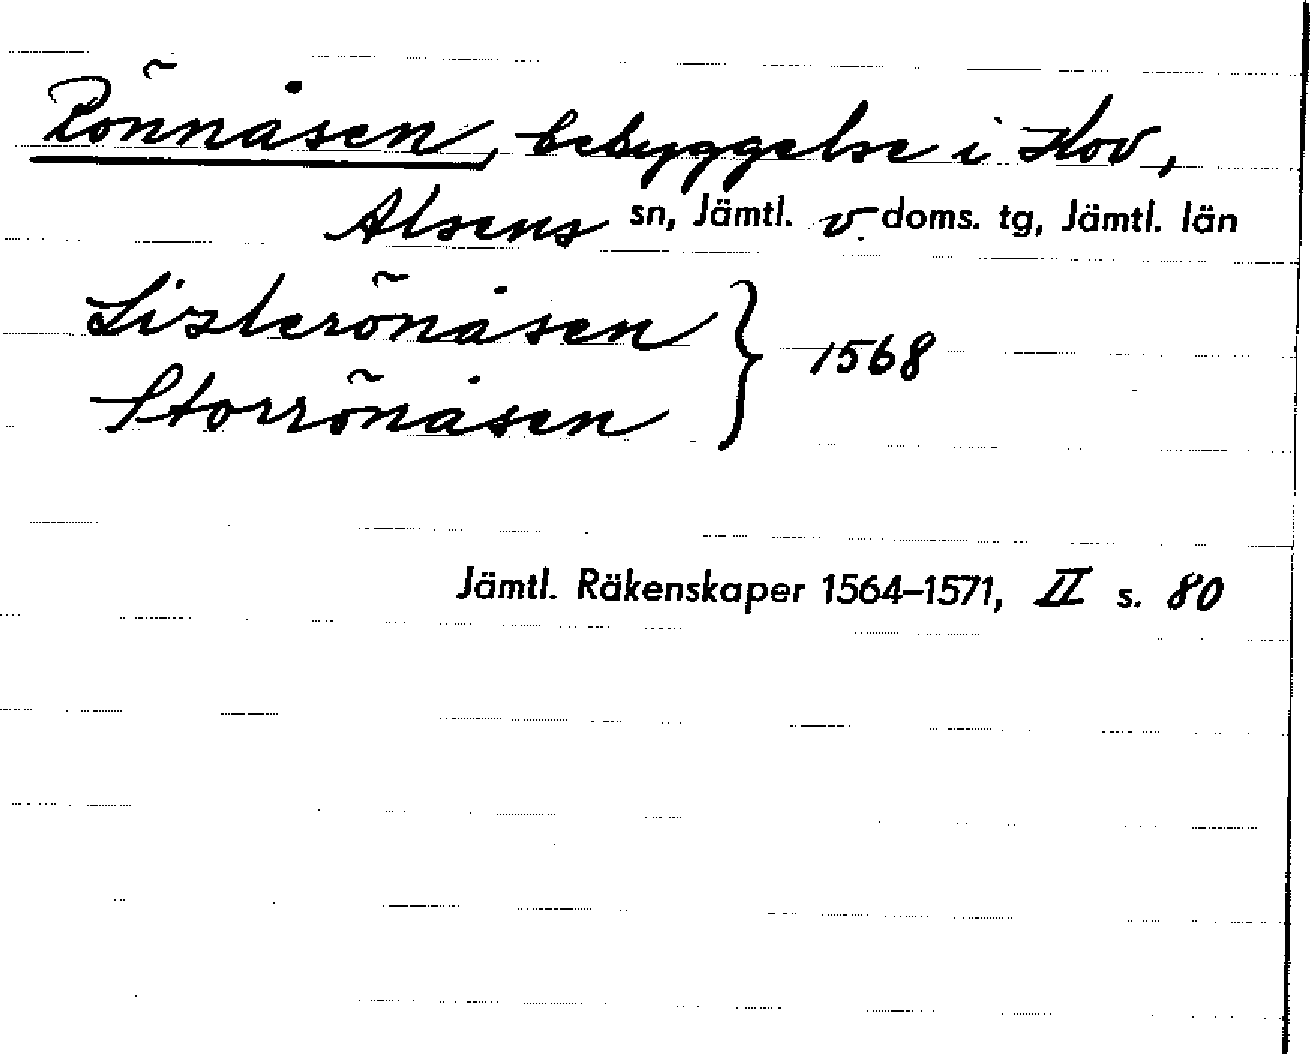 Rönnåsen, bebyggelse i Hov,
Alsens sn, Jämtl. v. doms. tg, Jämtl. län
Lislerönåsen
Storrönåsen } 1568
Jämtl. Räkenskaper 1564–1571, II s. 80